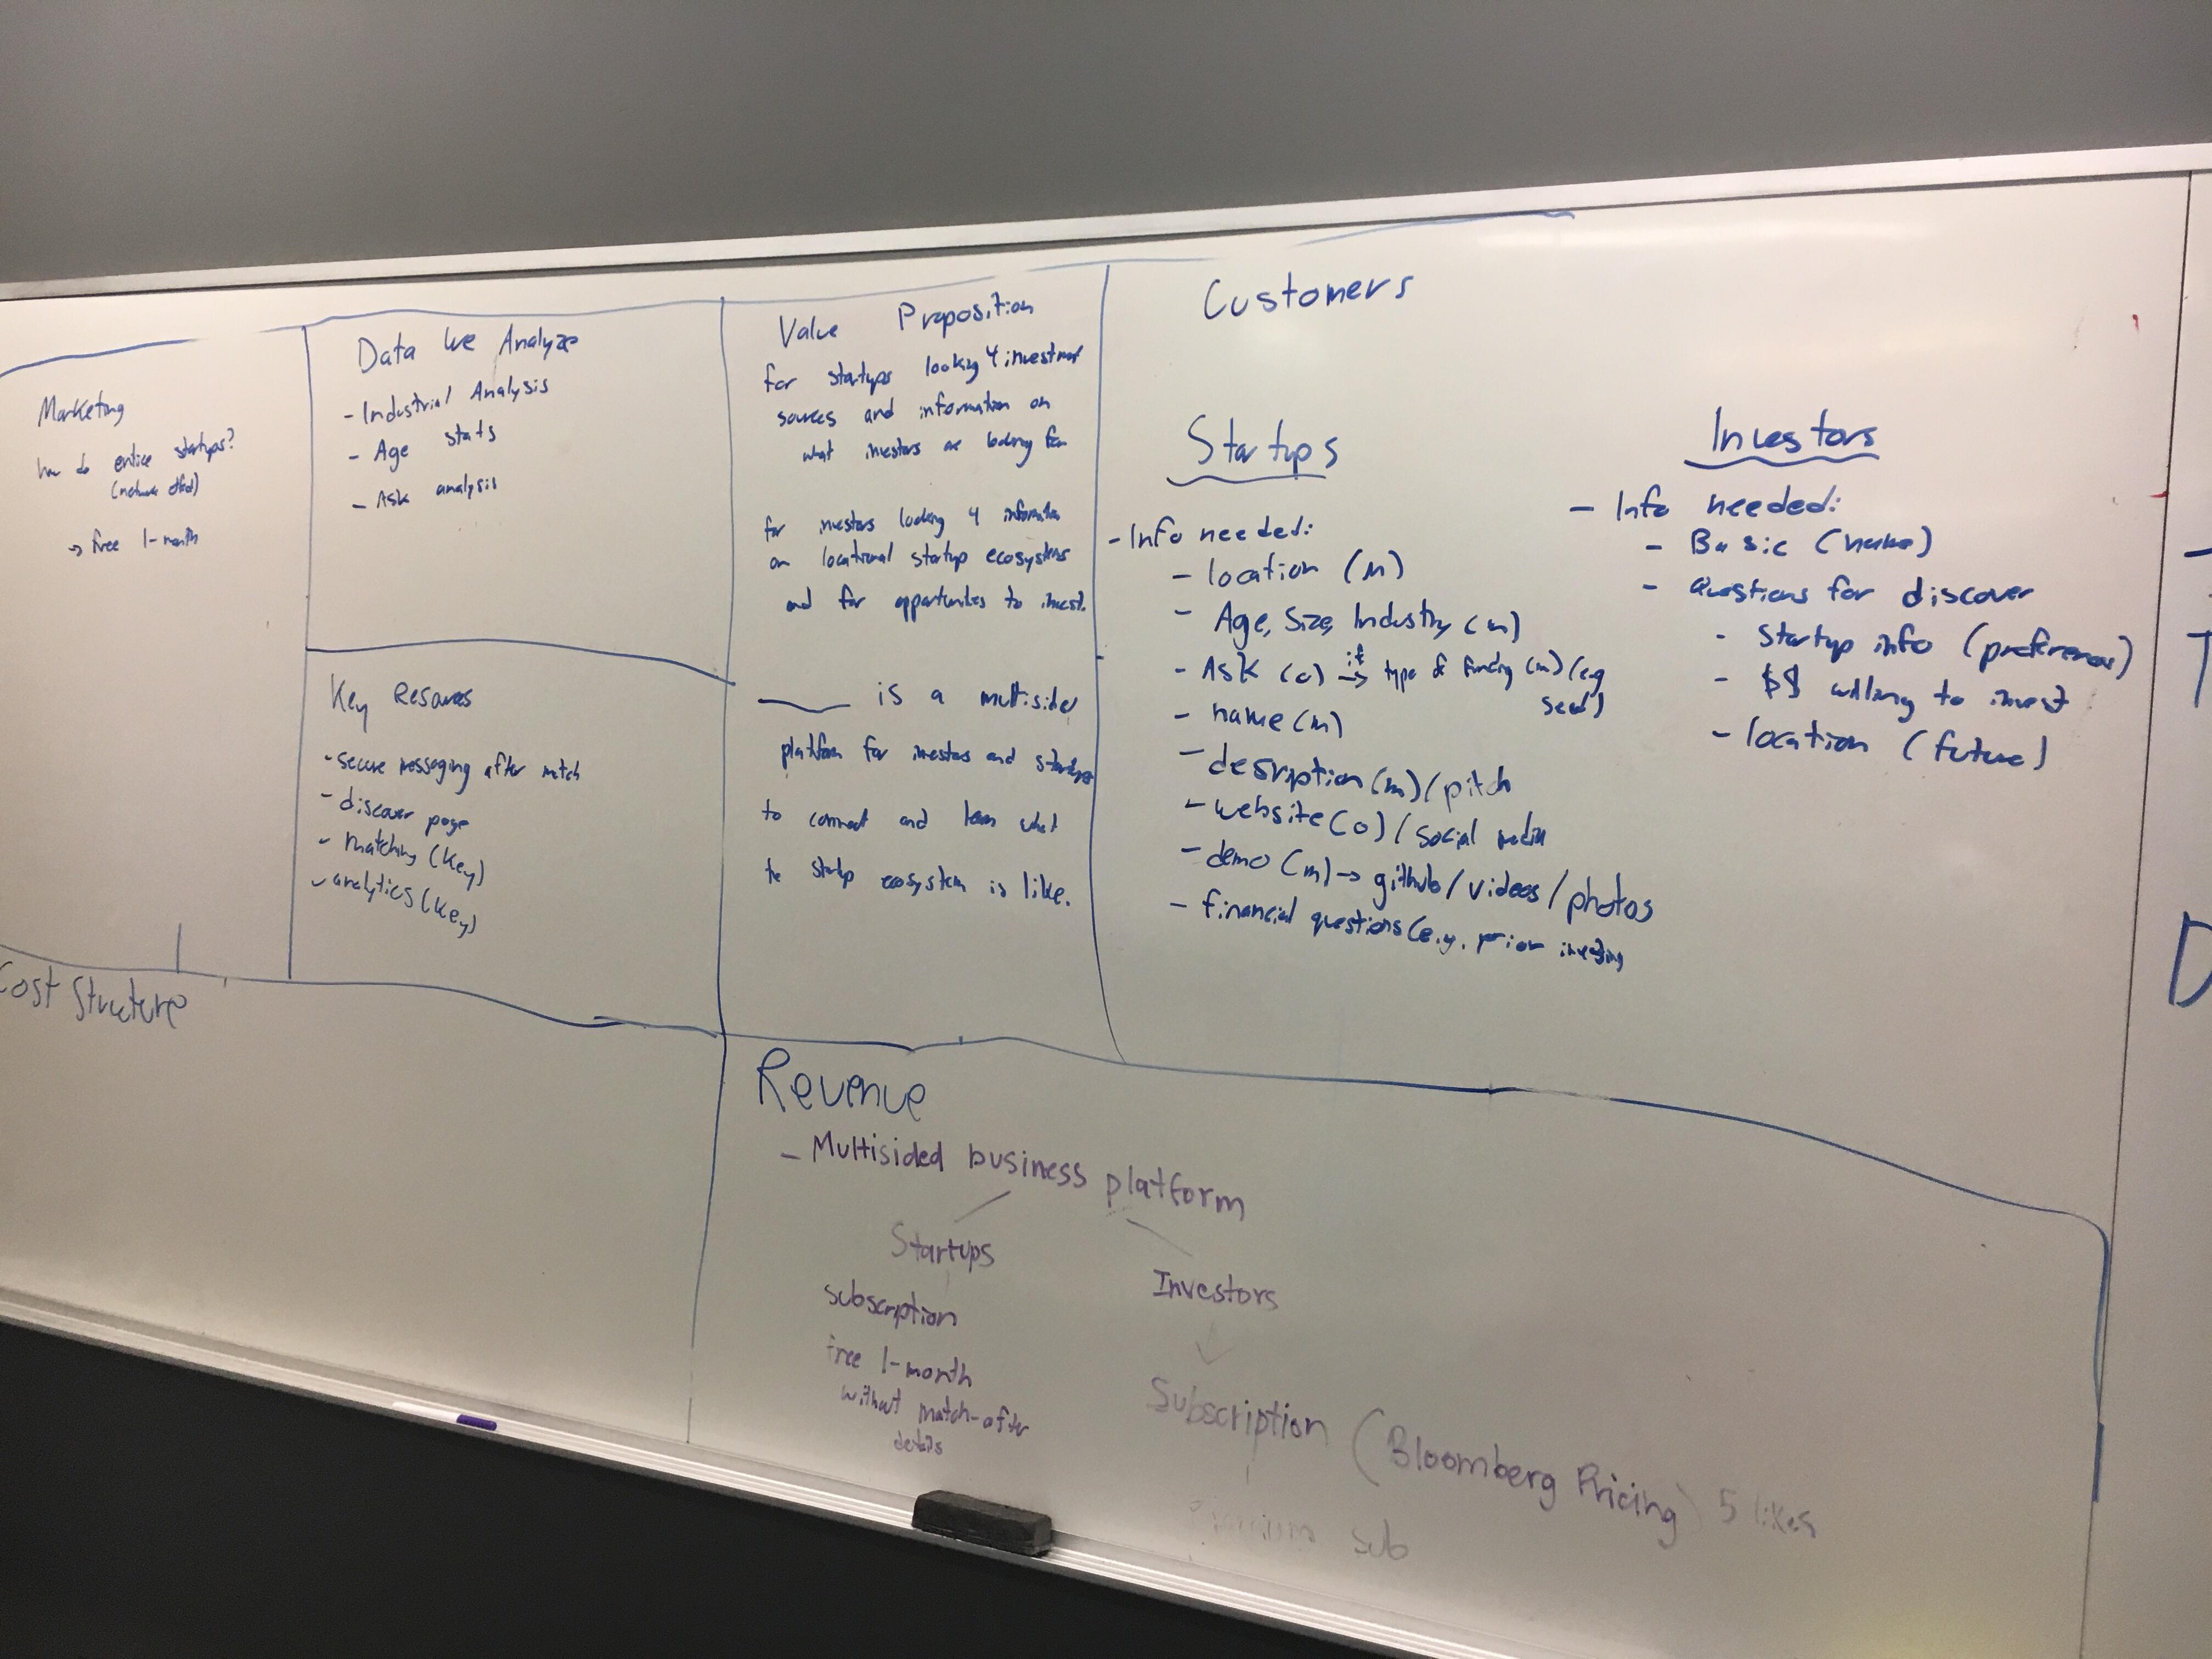 Marketing
how do entice startups?
(network effect)
→ free 1-month
Data We Analyze
- Industrial Analysis
- Age stats
- Ask analysis
Key Resources
- secure messaging after match
- discover page
- matching (key)
- analytics (key)
Value Proposition
for startups looking 4 investment
sources and information on
what investors are looking for
for investors looking 4 information
on locational startup ecosystems
and for opportunities to invest.
is a multisided
platform for investors and startups
to connect and learn what
the startup ecosystem is like.
Customers
Startups
- Info needed:
- location (m)
- Age, Size, Industry (m)
- Ask (o) if → type of funding (m) (e.g
seed)
- name (m)
- desription (m) / pitch
- website (o) / social media
- demo (m) → github / videos / photos
- financial questions (e.g. prior investing
Investors
- Info needed:
- Basic (name)
- Questions for discover
- Startup info (preferences)
- $$ willing to invest
- location (future)
Cost Structure
Revenue
- Multisided business platform
Startups
subscription
free 1-month
without match-after
details
Investors
Subscription (Bloomberg Pricing) 5 likes
Premium sub
T
D